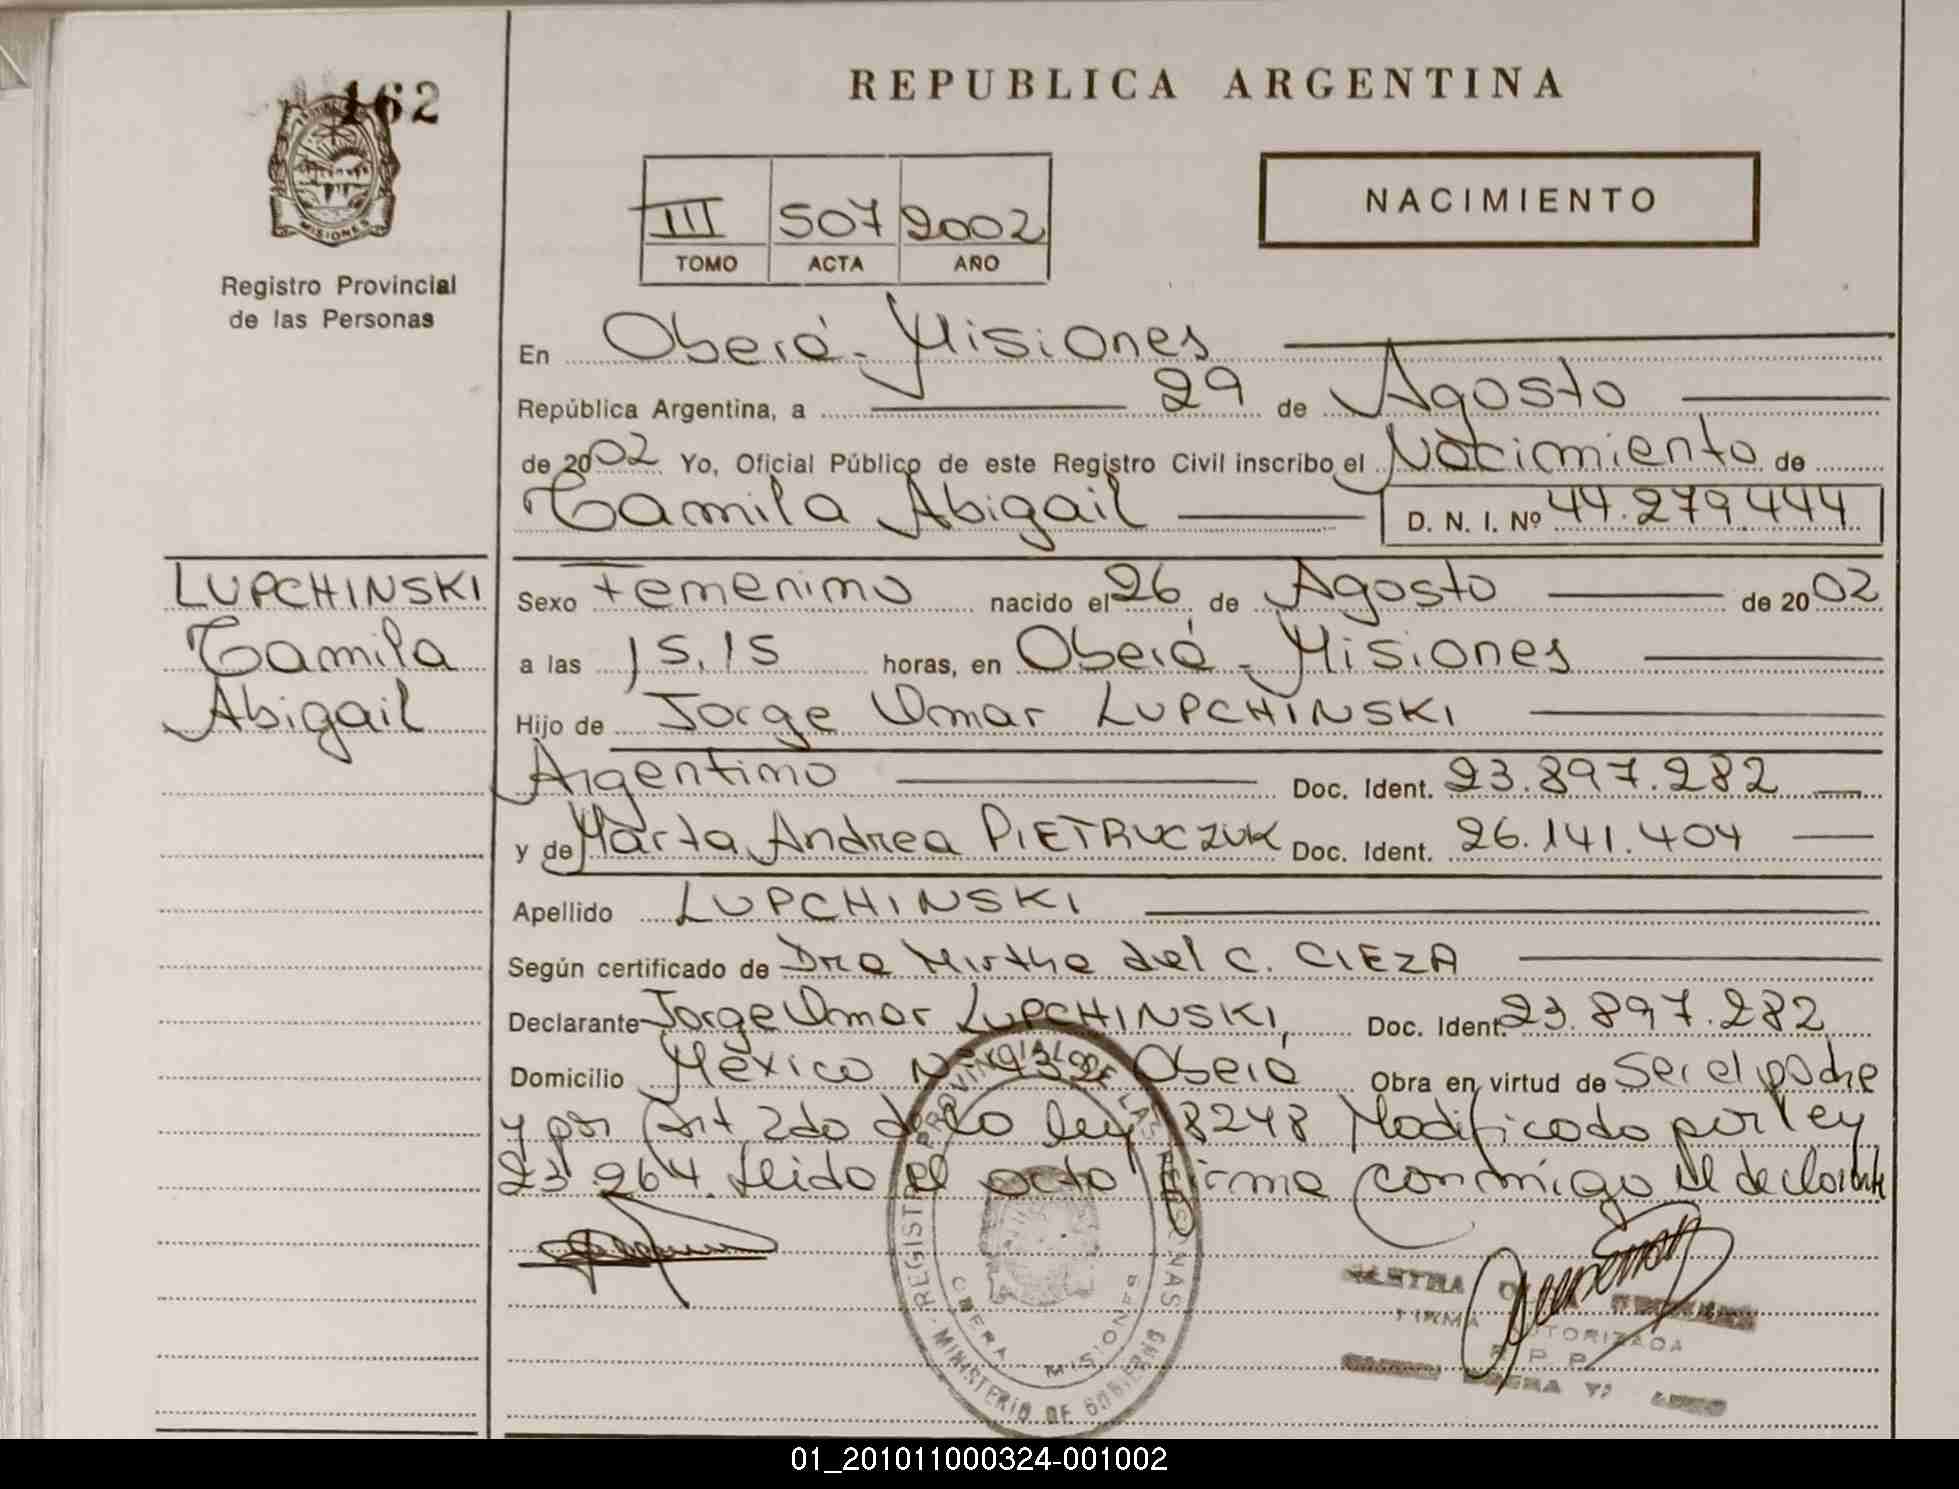 162
REPUBLICA ARGENTINA
NACIMIENTO
III 507 2002
TOMO ACTA AÑO
MISIONES
Registro Provincial
de las Personas
En Oberá - Misiones
República Argentina, a 29 de Agosto
de 2002 Yo, Oficial Público de este Registro Civil inscribo el Nacimiento de
Camila Abigail D. N. I. Nº 44.279.444
LUPCHINSKI
Camila
Abigail
Sexo Femenino nacido el 26 de Agosto de 2002
a las 15,15 horas, en Oberá - Misiones
Hijo de Jorge Omar LUPCHINSKI
Argentino Doc. Ident. 23.897.282
y de Marta Andrea PIETRUCZUK Doc. Ident. 26.141.404
Apellido LUPCHINSKI
Según certificado de Dra Mirtha del C. CIEZA
Declarante Jorge Omar LUPCHINSKI, Doc. Ident. 23.897.282
Domicilio México Nº 932 Oberá Obra en virtud de ser el padre
y por Art. 2do de la ley 18248 Modificado por ley
23.264. Leido el acta firma conmigo el declarante
REGISTRO PROVINCIAL DE LAS PERSONAS
OBERA MISIONES
MINISTERIO DE GOBIERNO
FIRMA AUTORIZADA
R P P
01_201011000324-001002